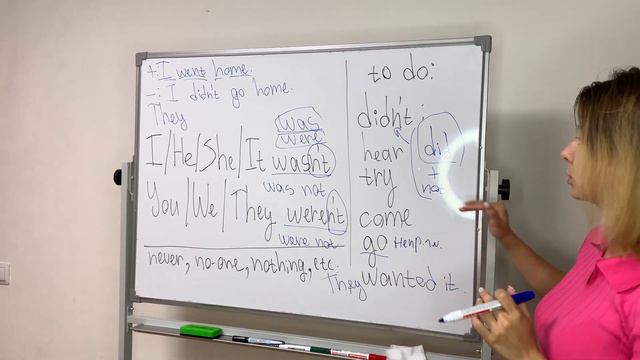 +: I went home.
–: I didn't go home.
They
was
were
I/He/She/It wasn't
was not
You/We/They weren't
were not
never, no-one, nothing, etc.
to do:
didn't :
hear
try
did
+
not
come
go непр.
They wanted it.